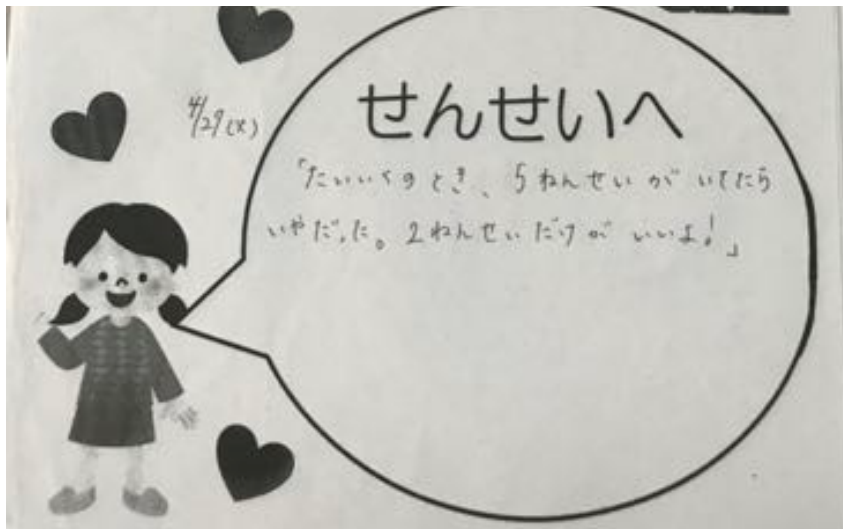 4/29(火)
せんせいへ
「たいいくのとき、5ねんせいが いてたら
いやだった。2ねんせいだけが いいよ!」